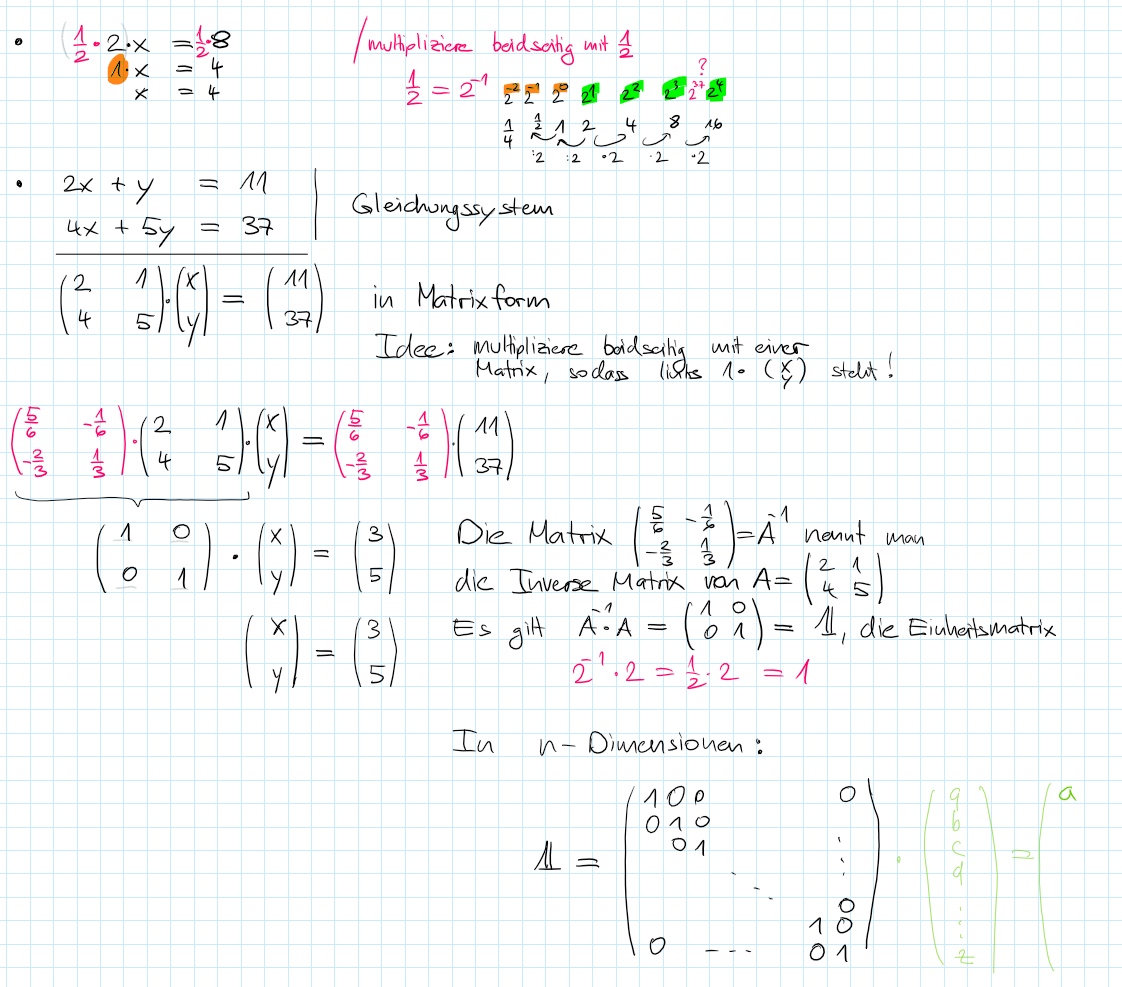 • 1/2 · 2 · x = 1/2 · 8 / multipliziere beidseitig mit 1/2
1 · x = 4
x = 4
1/2 = 2^-1 2^-2 2^-1 2^0 2^1 2^2 2^3 2^3,7 2^4
?
1/4 1/2 1 2 4 8 16
:2 :2 ·2 ·2 ·2
• 2x + y = 11
4x + 5y = 37 | Gleichungssystem
(2 1; 4 5) · (x; y) = (11; 37) in Matrixform
Idee: multipliziere beidseitig mit einer
Matrix, sodass links 1 · (x; y) steht!
(5/6 -1/6; -2/3 1/3) · (2 1; 4 5) · (x; y) = (5/6 -1/6; -2/3 1/3) · (11; 37)
(1 0; 0 1) · (x; y) = (3; 5)
(x; y) = (3; 5)
Die Matrix (5/6 -1/6; -2/3 1/3) = A^-1 nennt man
die Inverse Matrix von A = (2 1; 4 5)
Es gilt A^-1 · A = (1 0; 0 1) = 𝟙, die Einheitsmatrix
2^-1 · 2 = 1/2 · 2 = 1
In n-Dimensionen:
1 0 0 0
0 1 0
0 1
𝟙 =
0
1 0
0 --- 0 1
· (a b c d ⋮ z) = (a